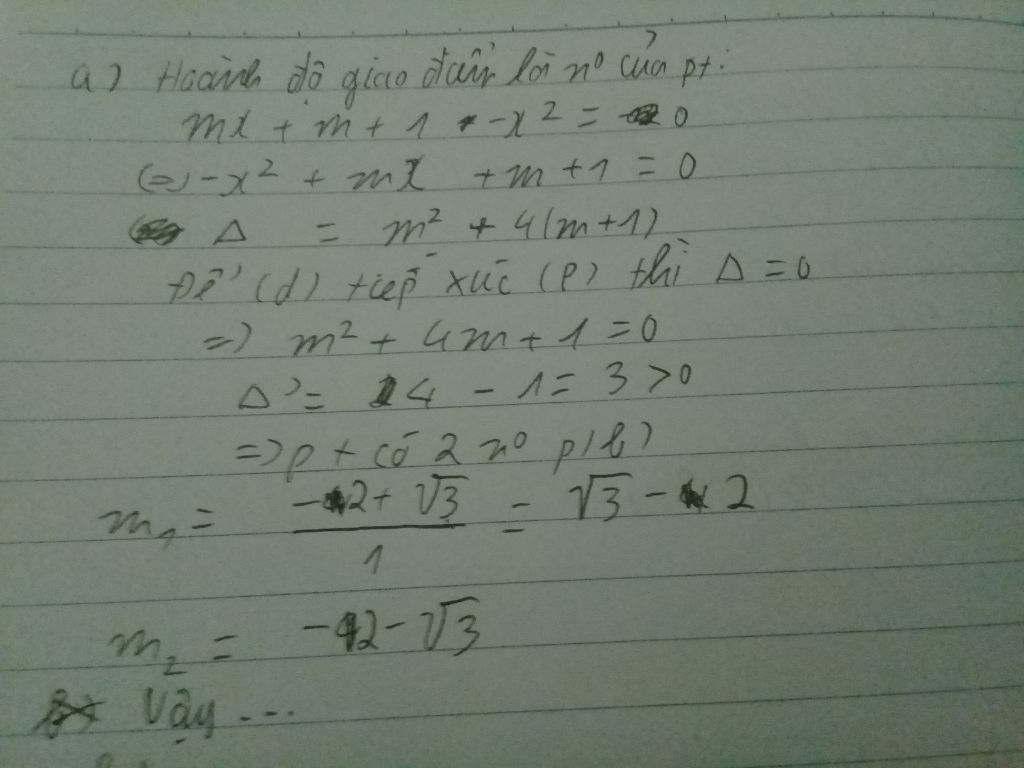 a) Hoành độ giao điểm là n⁰ của pt:
mx + m + 1 - x² = 0
(=) -x² + mx + m + 1 = 0
Δ = m² + 4(m+1)
Để (d) tiếp xúc (P) thì Δ = 0
=) m² + 4m + 1 = 0
Δ' = 4 - 1 = 3 > 0
=> pt có 2 n⁰ p/b)
m₁ = (-2 + √3)/1 = √3 - 2
m₂ = -2 - √3
Vậy ...